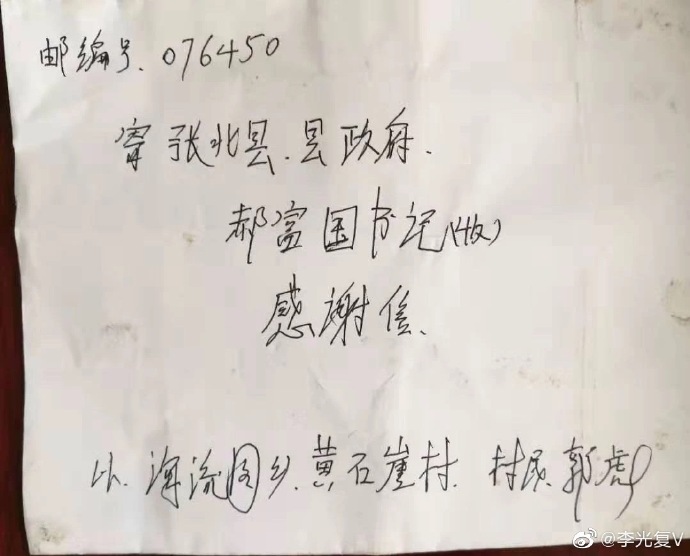 邮编号.076450
寄张北县.县政府.
郝富国书记(收)
感谢信.
海流图乡.黄石崖村.村民.郭虎
@李光复V